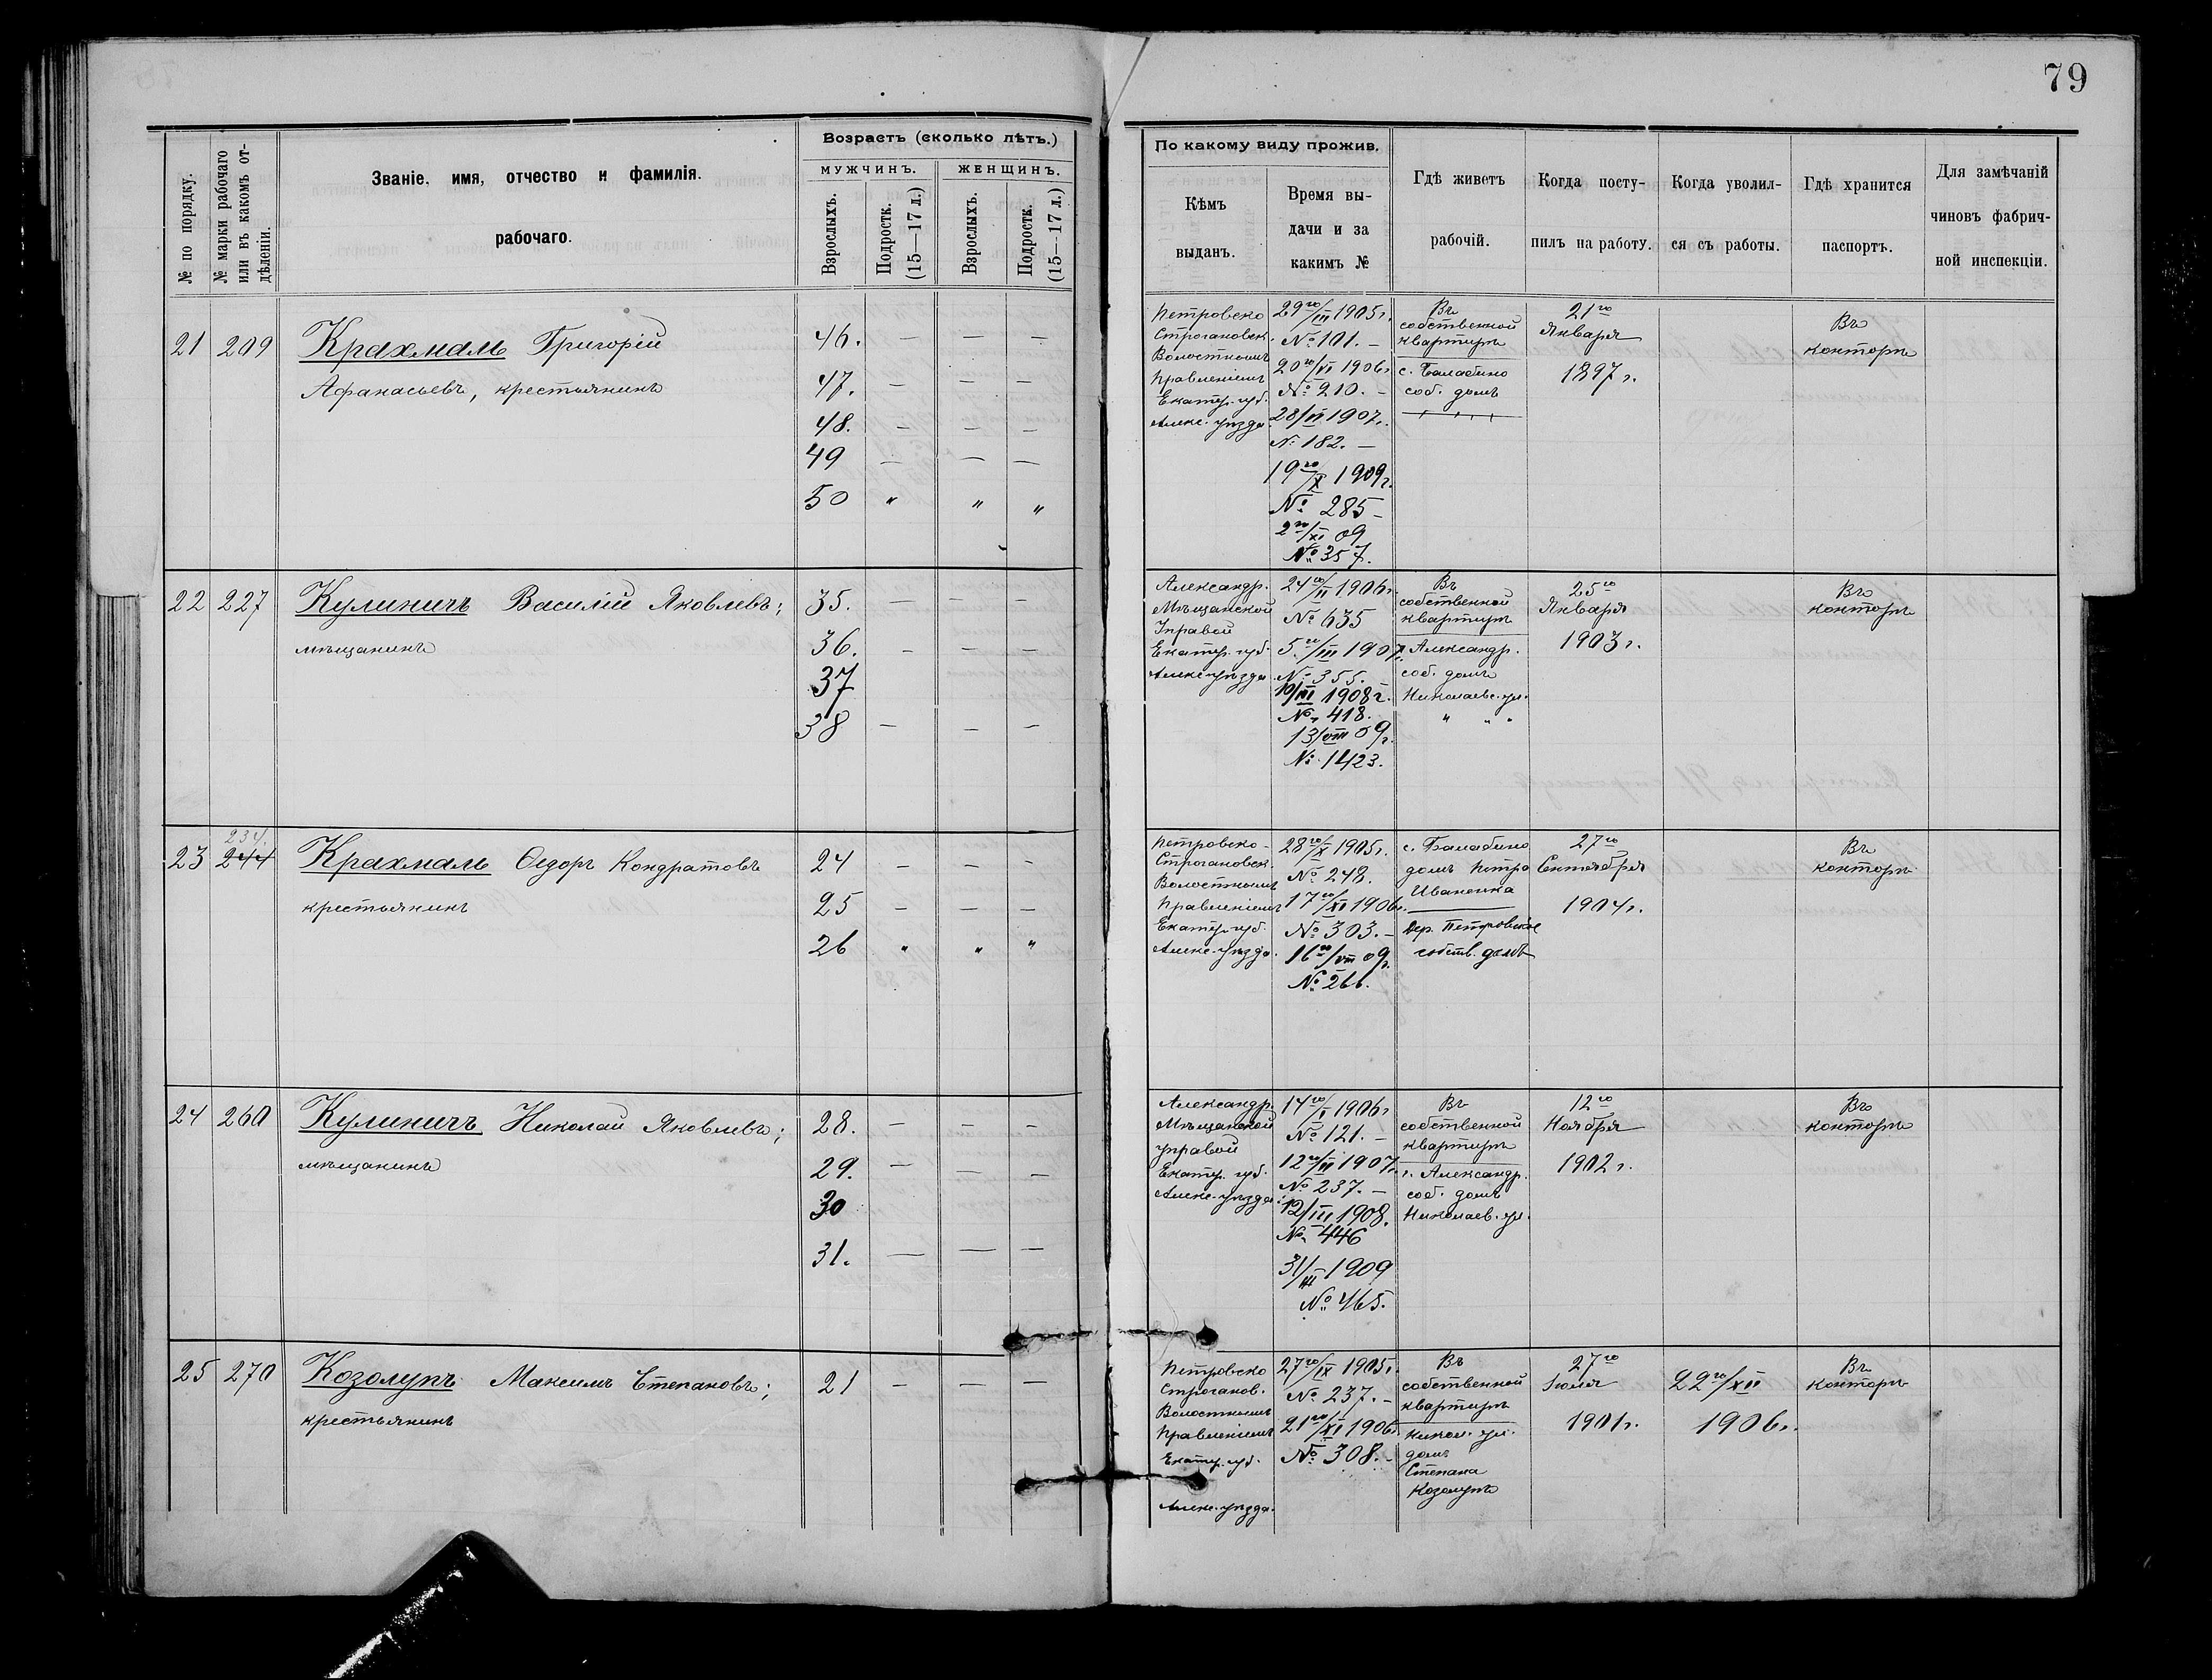 79
Возрастъ (сколько лѣтъ.)
МУЖЧИНЪ. ЖЕНЩИНЪ.
№ по порядку.
№ марки рабочаго или въ какомъ отдѣленіи.
Званіе, имя, отчество и фамилія.
рабочаго.
Взрослыхъ.
Подростк. (15—17 л.)
Взрослыхъ.
Подростк. (15—17 л.)
По какому виду прожив.
Кѣмъ
выданъ.
Время вы-
дачи и за
какимъ №
Гдѣ живетъ
рабочій.
Когда посту-
пилъ на работу.
Когда уволил-
ся съ работы.
Гдѣ хранится
паспортъ.
Для замѣчаній
чиновъ фабрич-
ной инспекціи.
21 209 Крахмаль Григорій
Афанасьевъ, крестьянинъ
46. — — —
47. — — —
48. — — —
49 — — —
50 " " "
Петровско
Строгановск.
Волостнымъ
Правленіемъ
Екатер. губ.
Алекс. уѣзда
29го/III 1905г.
№ 101. —
20го/VI 1906г
№ 210. —
28/VI 1907г.
№ 182. —
19го/X 1909г.
№ 285 —
2го/XI 09
№ 357.
Въ
собственной
квартирѣ
с. Балабино
соб. домъ
21го
Января
1897 г.
Въ
конторѣ
22 227 Кулиничъ Василій Яковлевъ;
мѣщанинъ
35. — — —
36. — — —
37
38 — — —
Александр.
Мѣщанской
Управой
Екатер. губ.
Алекс. уѣзда
24го/II 1906г.
№ 635
5.го/III 1907г.
№ 355.
10/III 1908г.
№ 418.
13/VIII 09г.
№ 1423.
Въ
собственной
квартирѣ
г. Александр.
соб. домъ
Николаевс. ул.
" " "
25го
Января
1903 г.
Въ
конторѣ
234.
23 244 Крахмаль Ѳедоръ Кондратовъ
крестьянинъ
24 — — —
25 — — —
26 " " "
Петровско-
Строгановск.
Волостнымъ
Правленіемъ
Екатер. губ.
Алекс. уѣзда.
28го/X 1905г.
№ 248.
17го/XI 1906г.
№ 303. —
16го/VIII 09г.
№ 266.
с. Балабино
домъ Петра
Иваненка
Дер. Петровское
собств. домъ
27го
Сентября
1904г.
Въ
конторѣ
24 260 Кулиничъ Николай Яковлевъ;
мѣщанинъ
28. — — —
29. — — —
30
31. — — —
Александр.
Мѣщанской
управой
Екатер. губ.
Алекс. уѣзда
14го/I 1906г
№ 121. —
12го/II 1907г.
№ 237. —
12/III 1908.
№ 446
31/III 1909
№ 465.
Въ
собственной
квартирѣ
г. Александр.
соб. домъ
Николаев. ул.
12го
Ноября
1902 г.
Въ
конторѣ
25 270 Козолупъ Максимъ Степановъ;
крестьянинъ
21 — — —
Петровско
Строганов.
Волостнымъ
Правленіемъ
Екатер. губ.
Алекс. уѣзда.
27го/IX 1905г.
№ 237. —
21го/XI 1906г
№ 308. —
Въ
собственной
квартирѣ
Никол. ул.
домъ
Степана
Козолупа
27го
Іюля
1901г.
22го/XII
1906г.
Въ
конторѣ